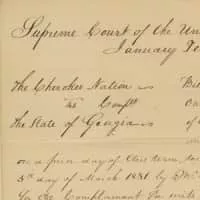 Supreme Court of the Un
January Te
The Cherokee Nation
vs Compt
The State of Georgia
Bil
on
of
on a prior day of this term, to
5th day of March 1831 by
for the Complainant for